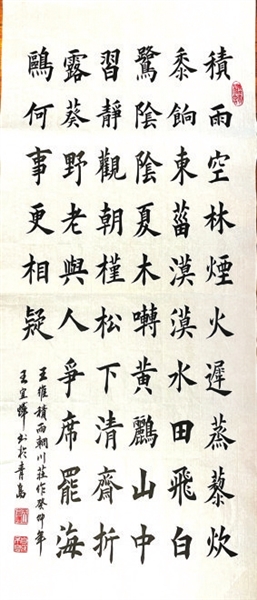 積雨空林煙火遲蒸藜炊
黍餉東菑漠漠水田飛白
鷺陰陰夏木囀黃鸝山中
習靜觀朝槿松下清齋折
露葵野老與人爭席罷海
鷗何事更相疑
王維積雨輞川莊作癸卯年
王宜 书於青島